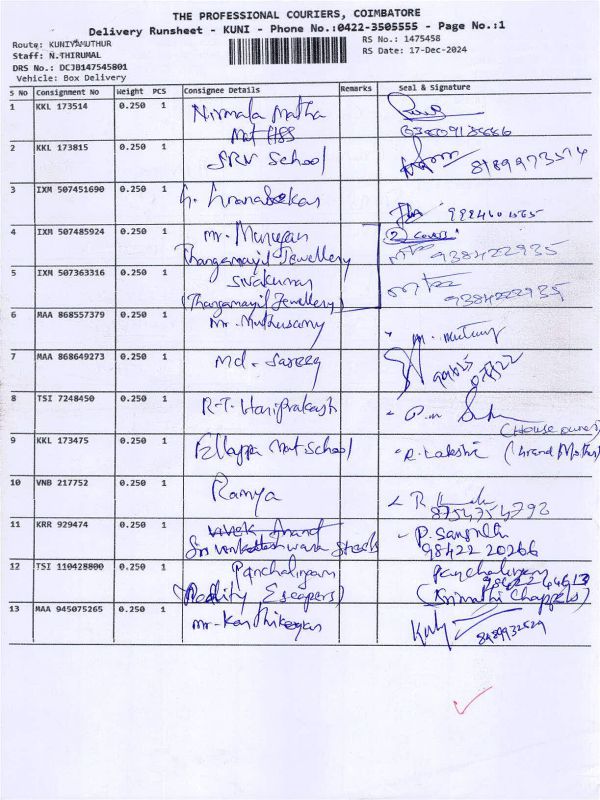 THE PROFESSIONAL COURIERS, COIMBATORE
Delivery Runsheet - KUNI - Phone No.:0422-3505555 - Page No.:1
Route: KUNIYAMUTHUR
RS No.: 1475458
Staff: N.THIRUMAL
RS Date: 17-Dec-2024
DRS No.: DCJB147545801
Vehicle: Box Delivery
S No Consignment No Weight PCS Consignee Details Remarks Seal & Signature
1 KKL 173514 0.250 1 Nirmala Matha
Mat HSS
2 KKL 173815 0.250 1 SRV School
3 IXM 507451690 0.250 1
4 IXM 507485924 0.250 1 Mr. Murugan (2) covers
Thangamayil Jewellery 938422935
5 IXM 507363316 0.250 1 Sivakumar
(Thangamayil Jewellery) 938422935
6 MAA 868557379 0.250 1 Mr. Muthusamy
7 MAA 868649273 0.250 1 Md.
8 TSI 7248450 0.250 1 R.T. Hariprakash
(House owner)
9 KKL 173475 0.250 1 Ellappa Mat. School R. Lakshmi (Grand Mother)
10 VNB 217752 0.250 1 Ramya R
8754754792
11 KRR 929474 0.250 1 Vivek Anand
Sri Venkateshwara Steels 98422 20266
12 TSI 110428800 0.250 1 Panchalingam Panchalingam
13 MAA 945075265 0.250 1 Mr. Karthikeyan